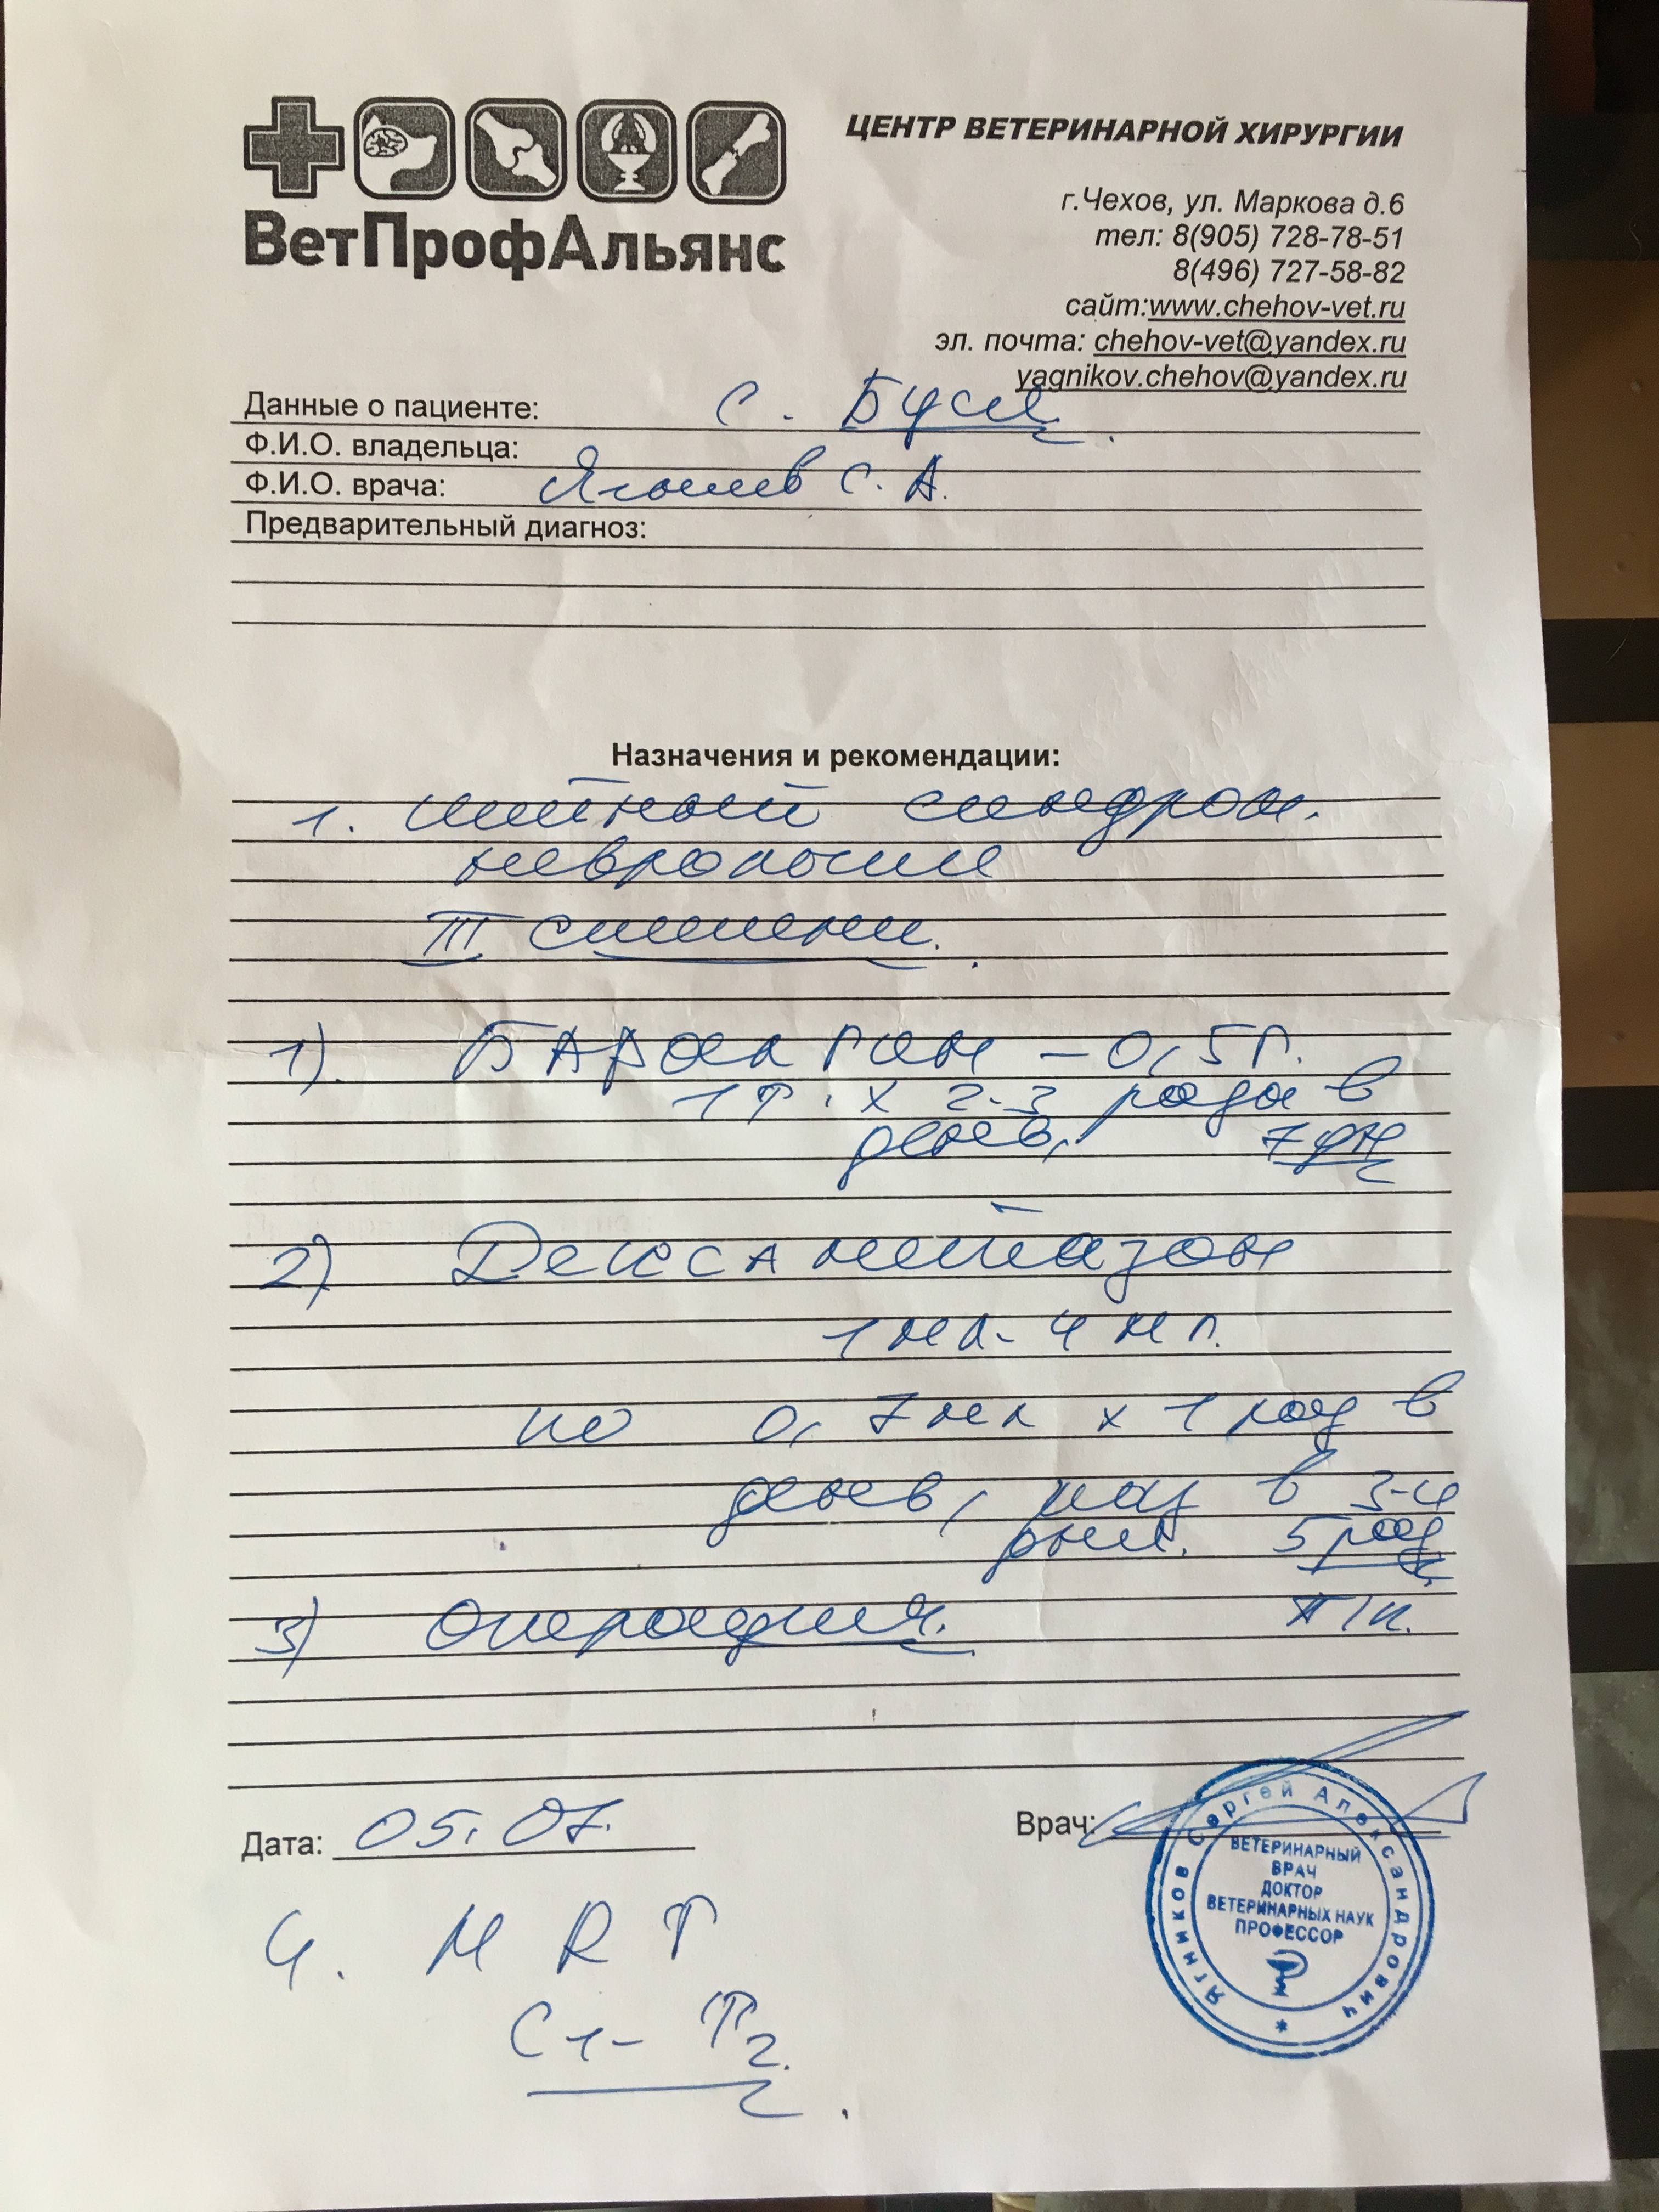 ВетПрофАльянс
ЦЕНТР ВЕТЕРИНАРНОЙ ХИРУРГИИ
г.Чехов, ул. Маркова д.6
тел: 8(905) 728-78-51
8(496) 727-58-82
сайт:www.chehov-vet.ru
эл. почта: chehov-vet@yandex.ru
yagnikov.chehov@yandex.ru
Данные о пациенте: с. Буся.
Ф.И.О. владельца:
Ф.И.О. врача: Ягников С. А.
Предварительный диагноз:
Назначения и рекомендации:
1. шейный синдром.
неврология
III степени.
1). Баралгин - 0,5 г.
1 т. х 2-3 раза в
день, 7 дн
2) Дексаметазон
1 мл - 4 мг.
по 0,7 мл х 1 раз в
день, раз в 3-4
дня. 5 раз
3) Операция. п/к.
Дата: 05.07.
Врач:
Ягников Сергей Александрович
ВЕТЕРИНАРНЫЙ
ВРАЧ
ДОКТОР
ВЕТЕРИНАРНЫХ НАУК
ПРОФЕССОР
4. МRТ
C1 - T2.